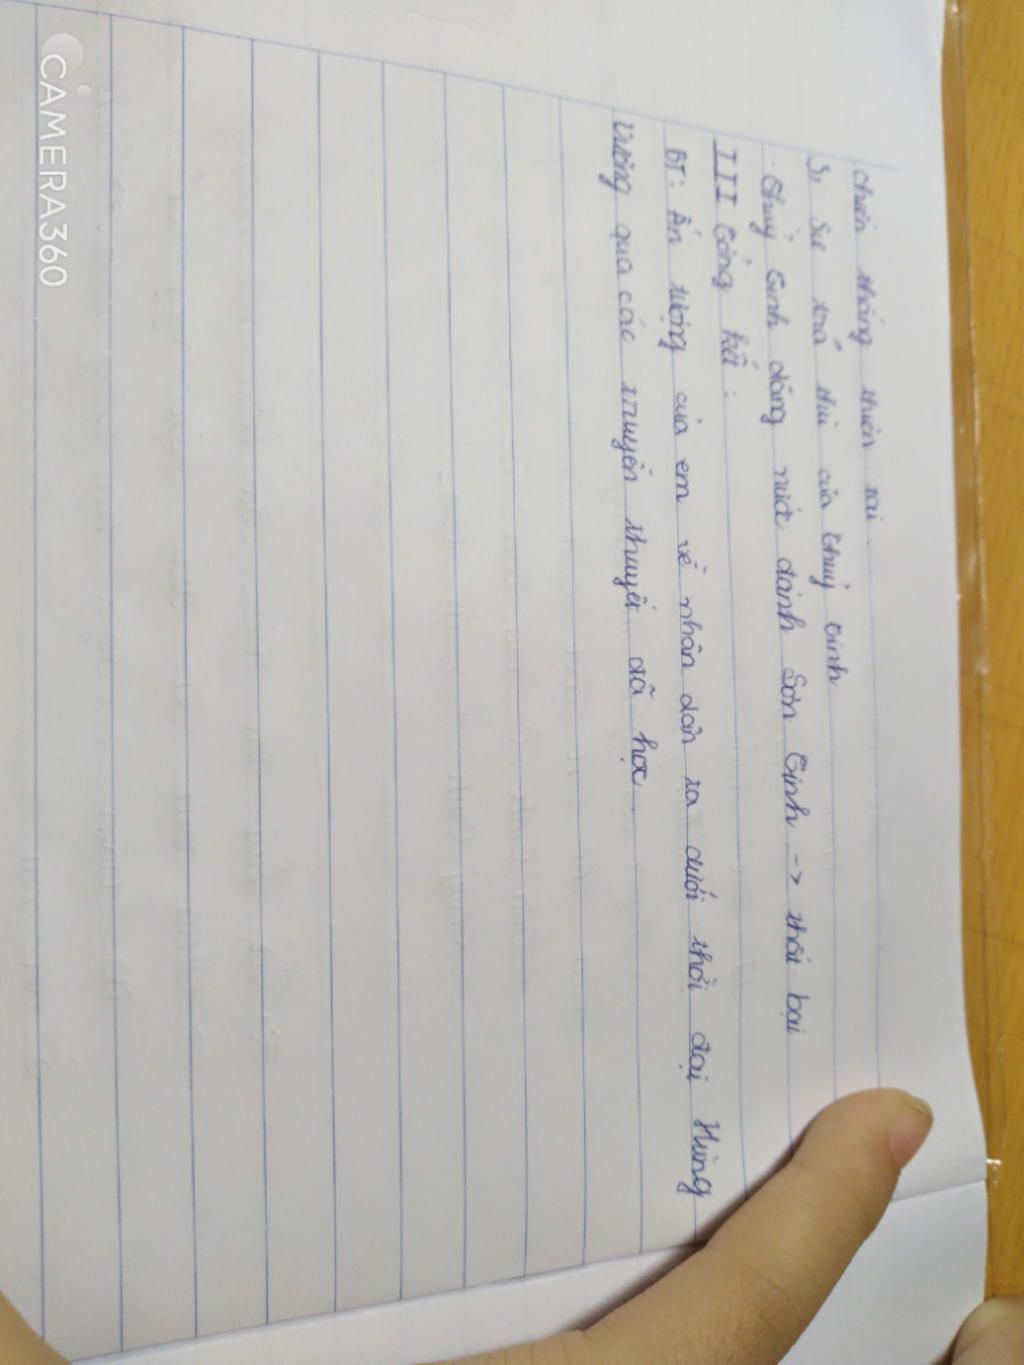 chiến thắng thiên tai.
3, Sự trả thù của Thuỷ Tinh
Thuỷ Tinh dâng nước đánh Sơn Tinh -> thất bại
III Tổng kết:
BT: Ấn tượng của em về nhân dân ta dưới thời đại Hùng
Vương qua các truyền thuyết đã học.
CAMERA360